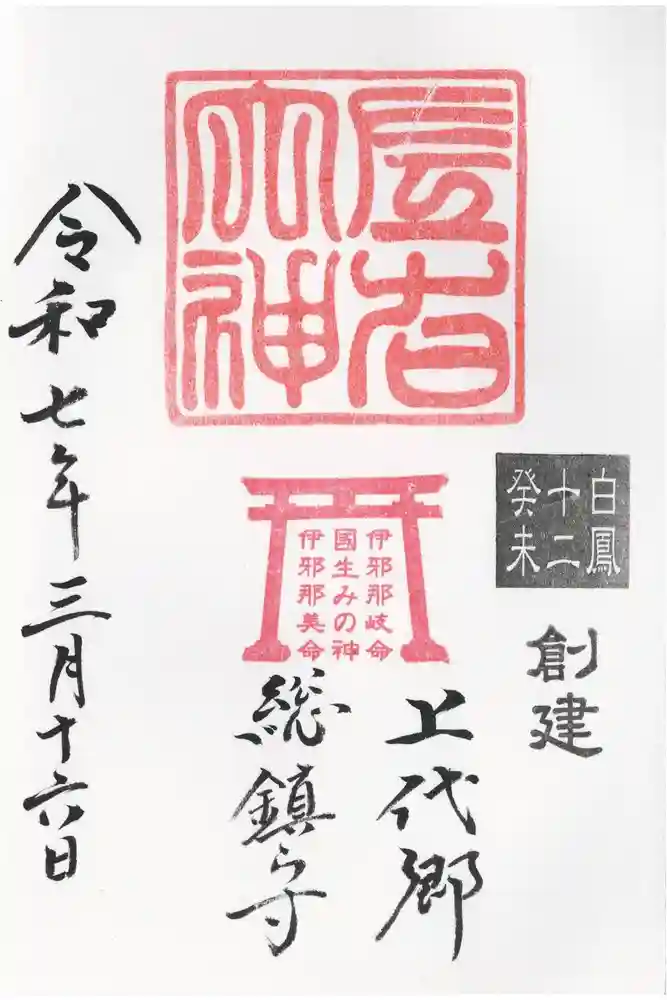 左右
大神
白鳳
十二
癸未
創建
伊邪那岐命
國生みの神
伊邪那美命
上代郷
総鎮守
令和七年三月十六日